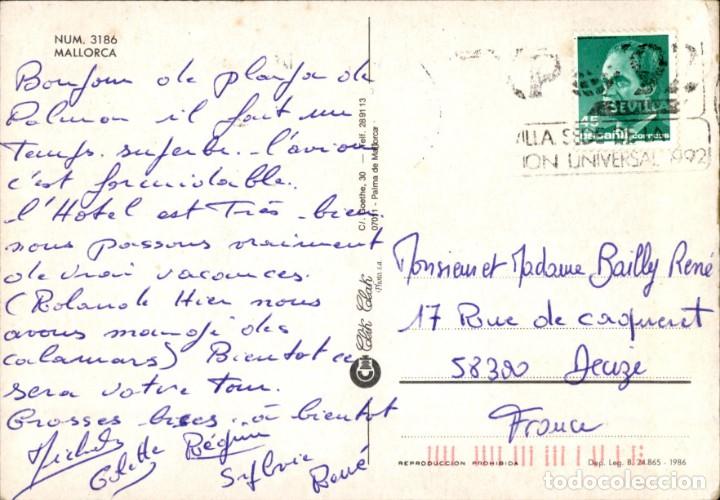 NUM. 3186
MALLORCA
Bonjour de playa de
Palma il fait un
temps superbe. l'avion
c'est formidable.
l'Hotel est Très bien
nous passons vraiment
de vrai vacances.
(Rolande Hier nous
avons mangé des
calamars) Bientot ce
sera votre tour.
Grosses bises.. à bientot
Colette Régine
Sylvie René
C/. Goethe, 30 — Telf. 289113
07011 - Palma de Mallorca
Clik Clak
Photo, s.a.
45
SEVILLA
España correos
ION UNIVERSAL 1992
Monsieur et Madame Bailly René
17 Rue de caqueret
58300 Decize
France
REPRODUCCION PROHIBIDA
Dep. Leg. B. 24.865 - 1986
todocoleccion
todocoleccion.net